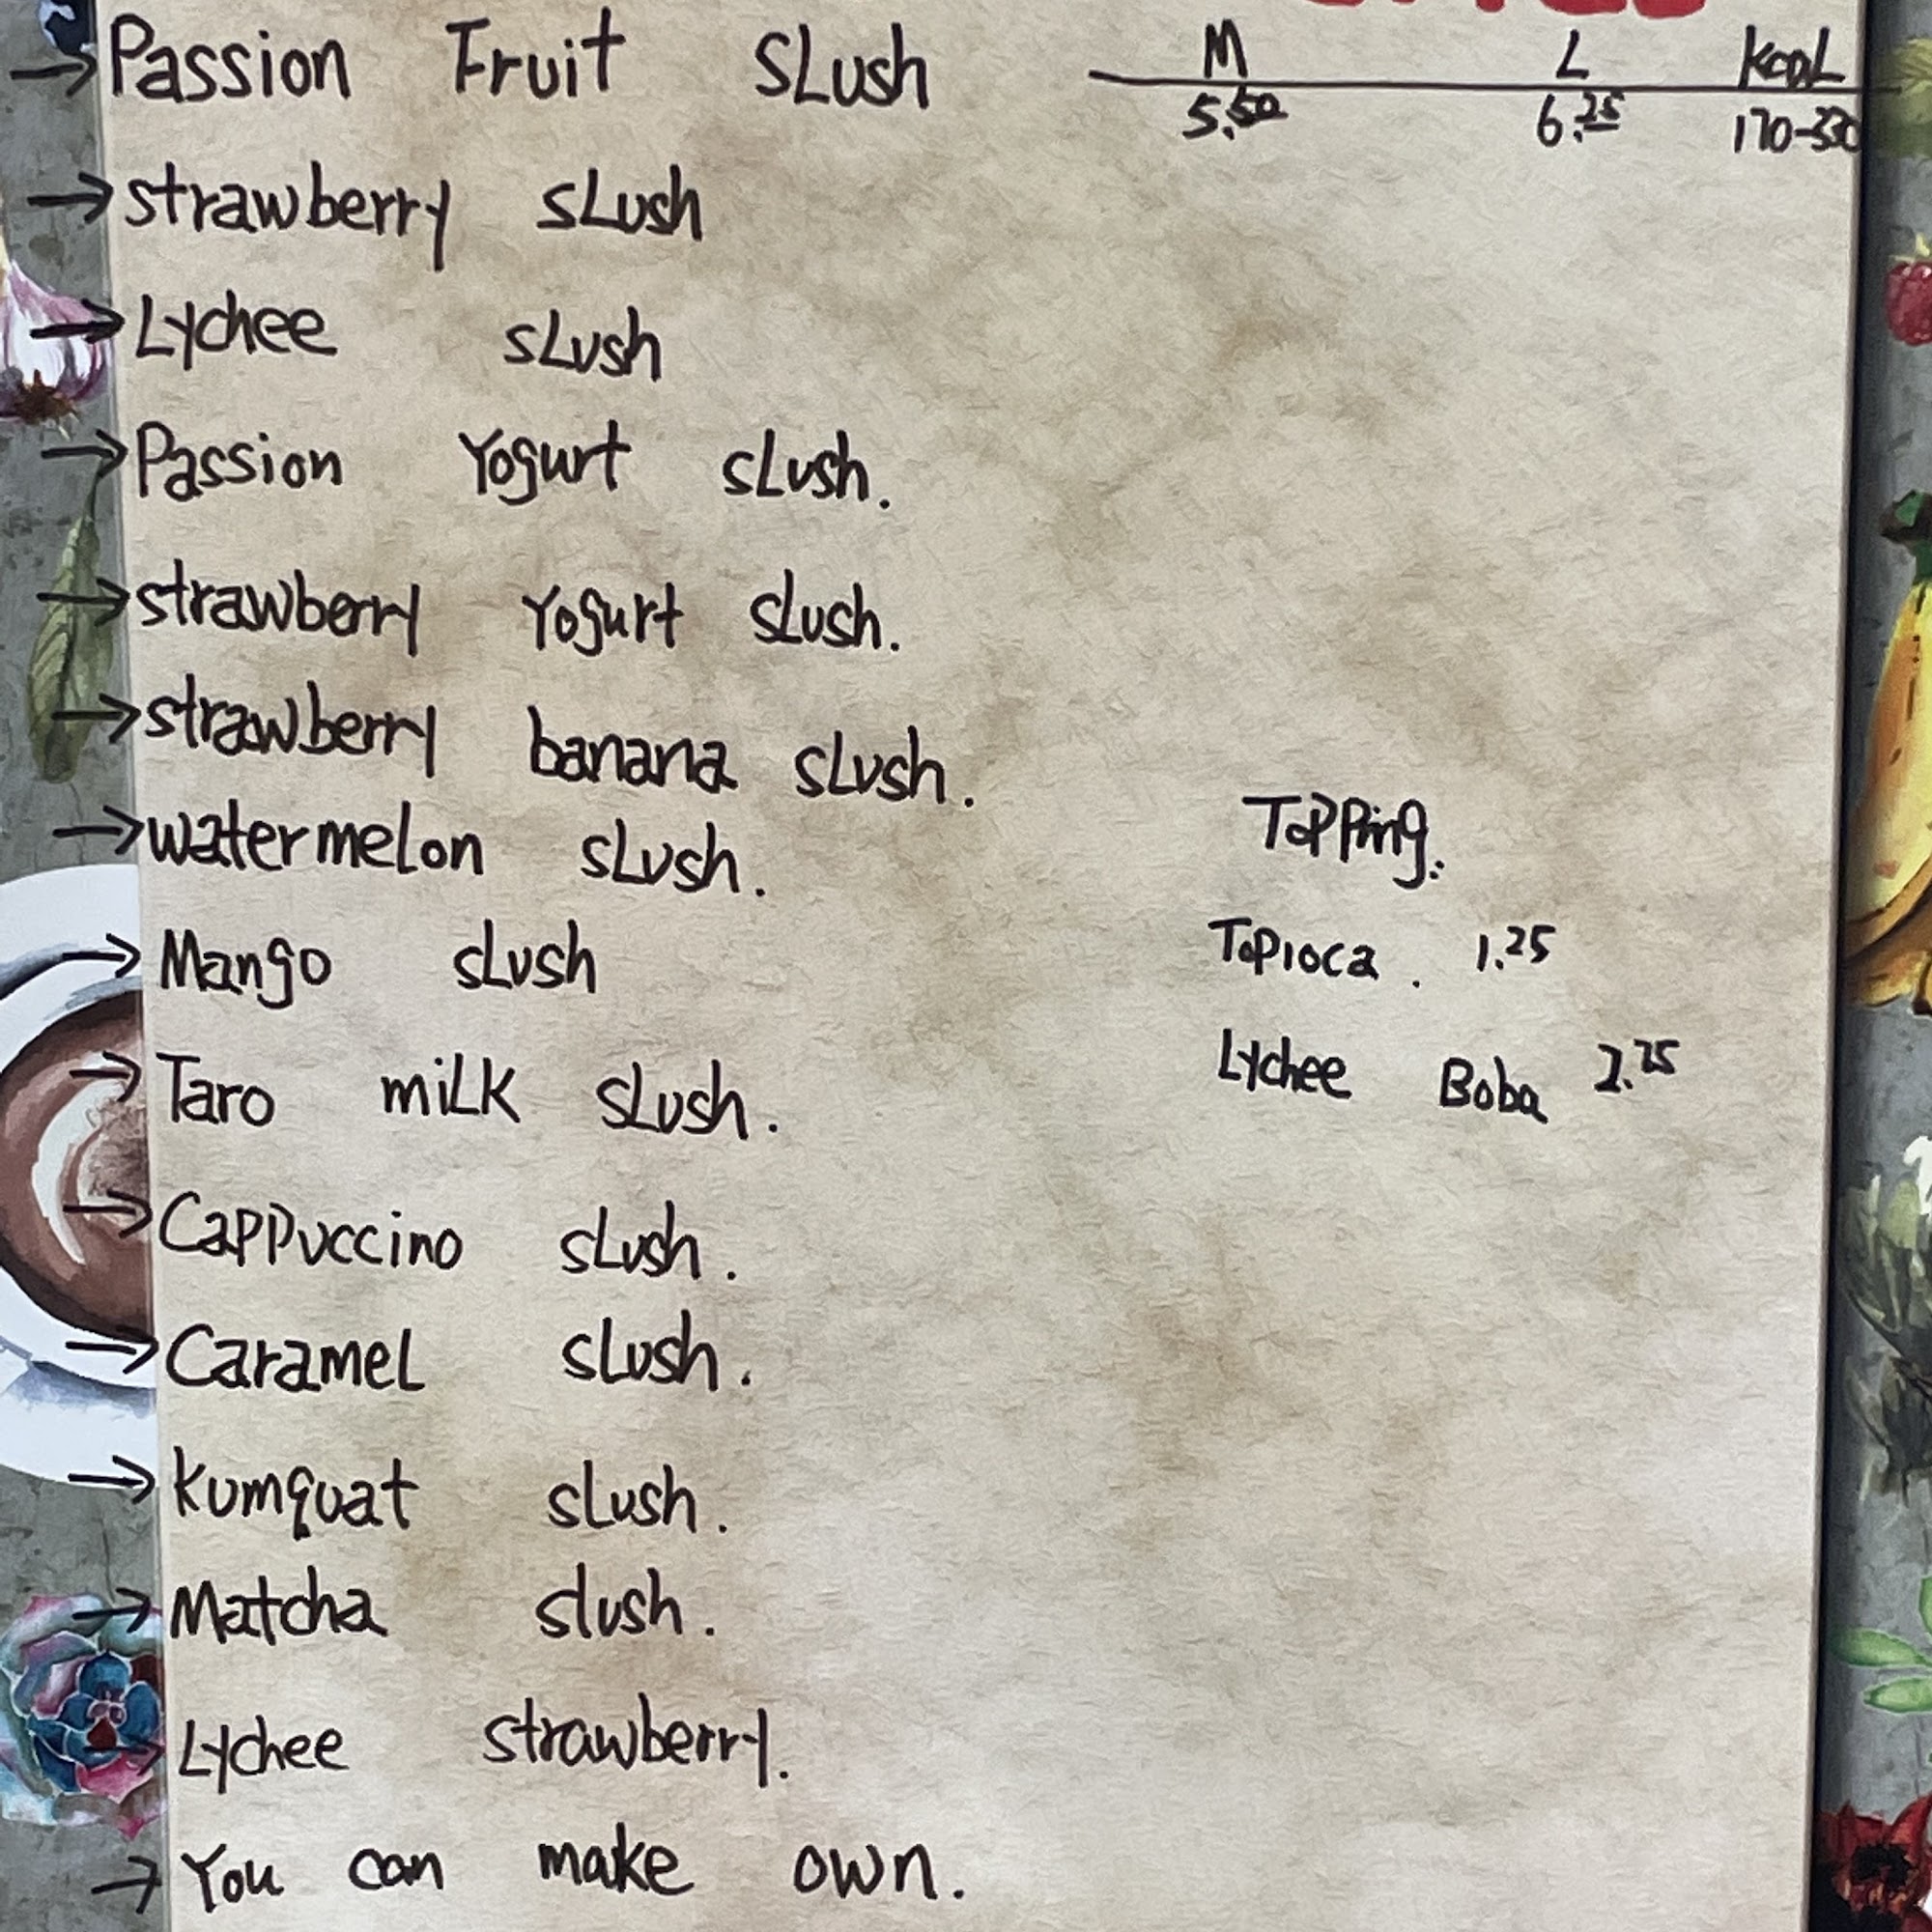 → Passion Fruit SLush
M L KcaL
5.50 6.25 170-330
→ strawberry sLush
→ Lychee sLush
→ Passion Yogurt sLush.
→ strawberry Yogurt sLush.
→ strawberry banana sLush.
→ watermelon sLush.
→ Mango sLush
→ Taro miLK sLush.
→ CaPPuccino sLush.
→ CarameL sLush.
→ Kumquat sLush.
→ Matcha slush.
→ Lychee strawberry.
→ You can make own.
ToPPing:
ToPioca. 1.25
Lychee Boba